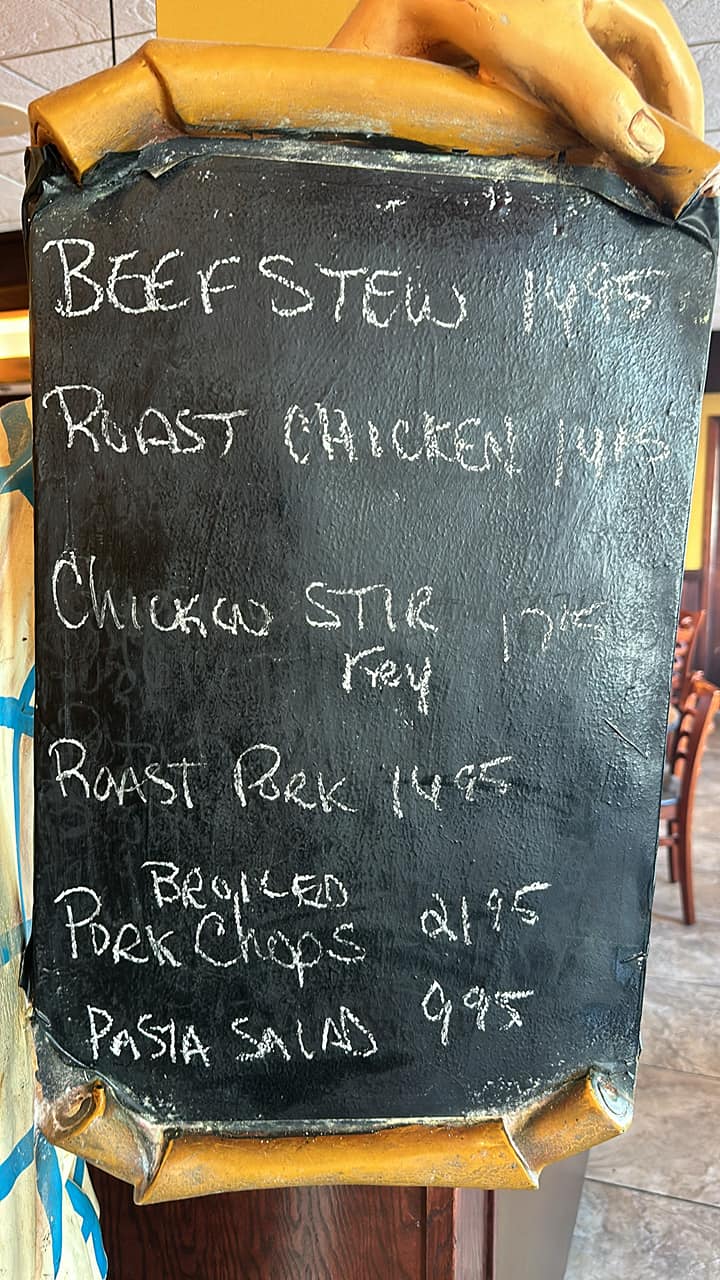 BEEF STEW 1495
ROAST CHICKEN 1495
CHICKEN STIR 1795
Frey
ROAST PORK 1495
BROILED
PORK Chops 2195
PASTA SALAD 995